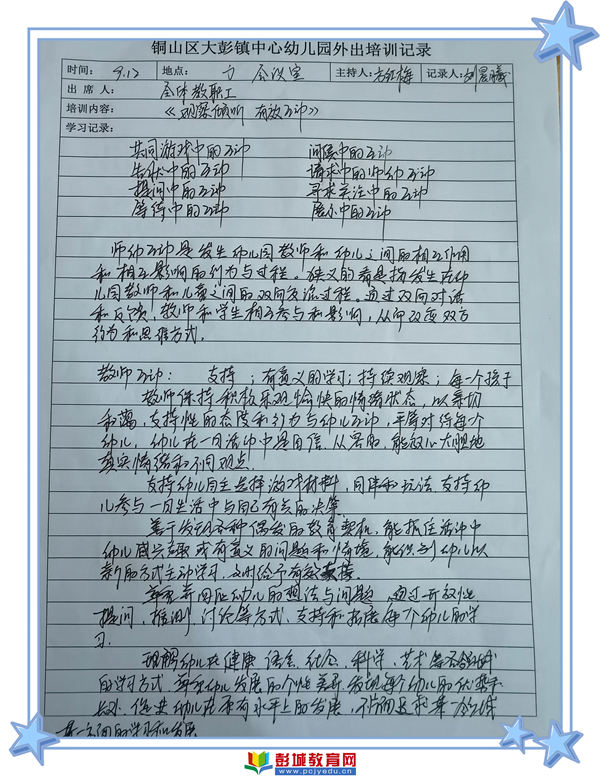 铜山区大彭镇中心幼儿园外出培训记录
时间： 9.12 地点： 会议室 主持人： 记录人：
出 席 人： 全体教职工
培训内容： 《观察倾听 有效互动》
学习记录：
共同游戏中的互动 间隙中的互动
告状中的互动 请求中的师幼互动
提问中的互动 寻求关注中的互动
等待中的互动 展示中的互动
师幼互动是发生幼儿园教师和幼儿之间的相互作用
和相互影响的行为与过程。狭义的看是指发生在幼
儿园教师和儿童之间的双向交流过程。通过双向对话
和反馈，教师和学生相互参与和影响，从而改变双方
行为和思维方式。
教师互动： 支持；有意义的学习；持续观察；每一个孩子
教师保持积极乐观愉快的情绪状态，以亲切
和蔼，支持性的态度和行为与幼儿互动，平等对待每个
幼儿，幼儿在一日活动中是自信、从容的，能放心大胆地
真实情绪和不同观点。
支持幼儿自主选择游戏材料，同伴和玩法，支持幼
儿参与一日生活中与自己有关的决策。
善于发现各种偶发的教育契机，能抓住活动中
幼儿感兴趣或有意义的问题和情境，能识别幼儿以
新的方式主动学习，及时给予有效支持。
尊重并回应幼儿的想法与问题，通过开放性
提问，推测，讨论等方式，支持和拓展每个幼儿的学
习。
理解幼儿在健康，语言，社会，科学，艺术等各领域
的学习方式，尊重幼儿发展的个性差异，发现每个幼儿的优势和
长处，促进幼儿在原有水平上的发展，不片面追求某一领域
某一方面的学习和发展
彭城教育网
www.pcjyedu.cn